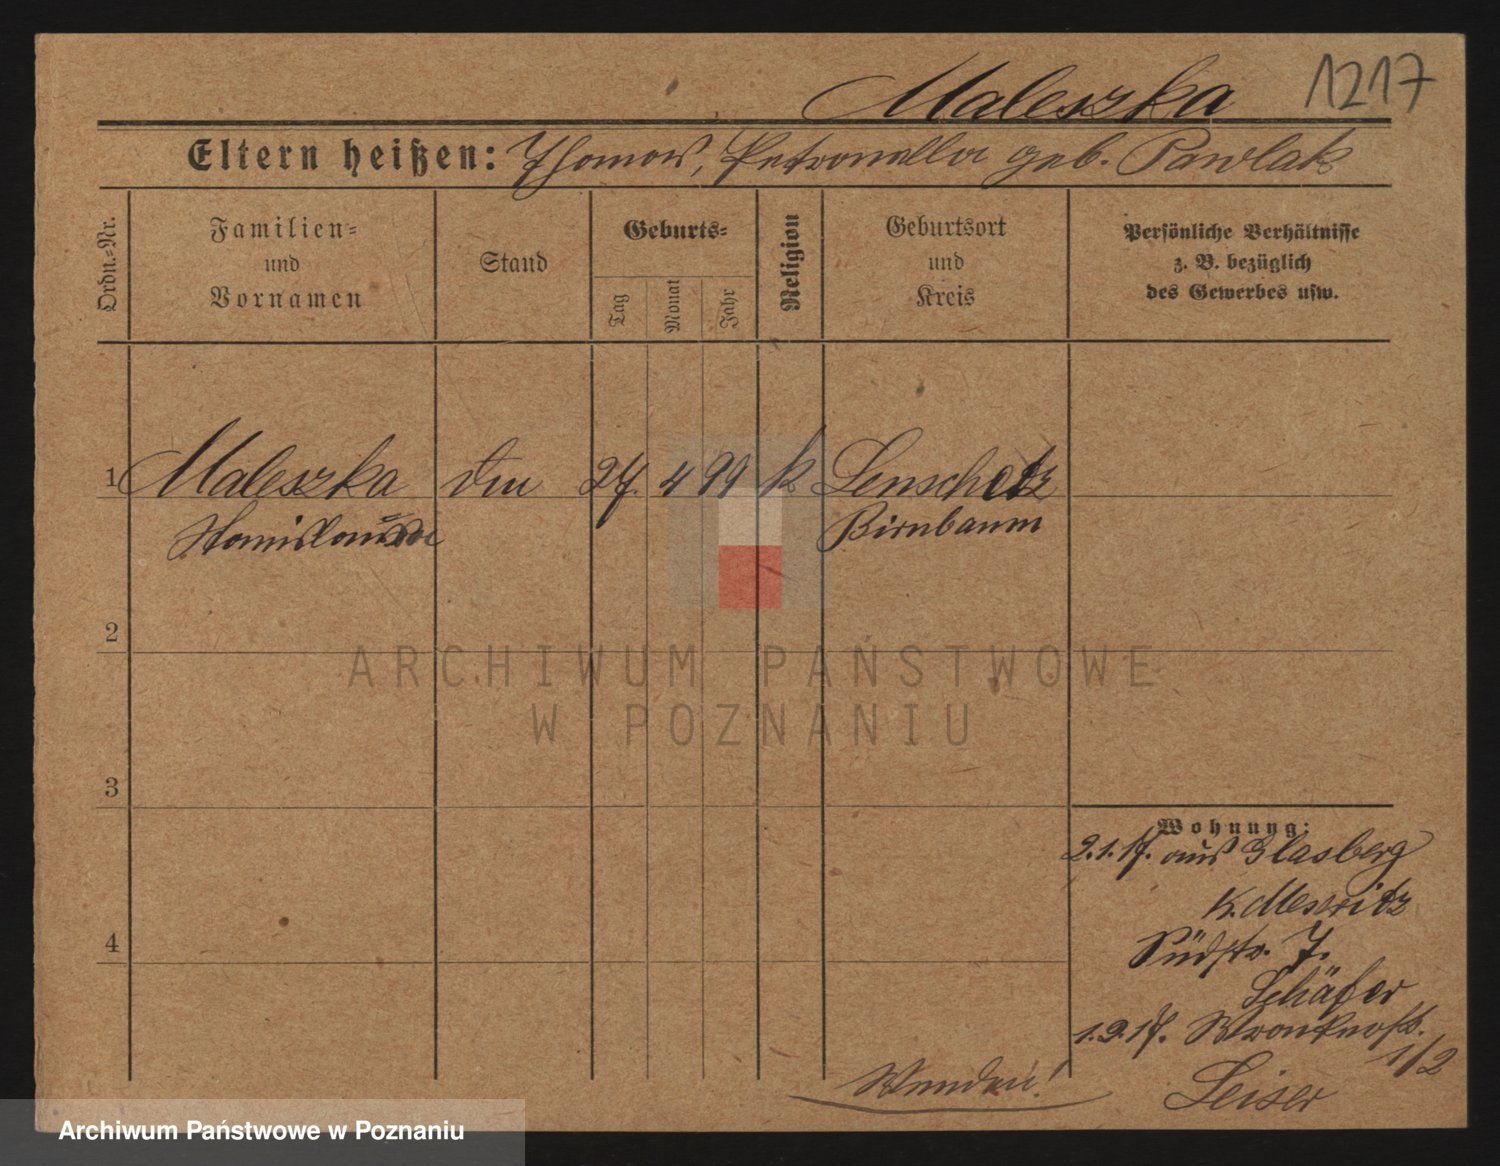 Maleszka 1217
Eltern heißen: Thomas, Petronella geb. Pawlak
Ordn.-Nr.
Familien-
und
Vornamen
Stand
Geburts-
Tag
Monat
Jahr
Religion
Geburtsort
und
Kreis
Persönliche Verhältnisse
z. B. bezüglich
des Gewerbes usw.
1 Maleszka 27. 4 99 k
Stanislawa Birnbaum
2
3
4
ARCHIWUM PAŃSTWOWE
W POZNANIU
Wohnung:
2.1.17. aus Glasberg
K. Meseritz
Südstr. 7.
Schäfer
1.2.17. Wronkerstr.
1/2
Leiser
Wenden!
Archiwum Państwowe w Poznaniu